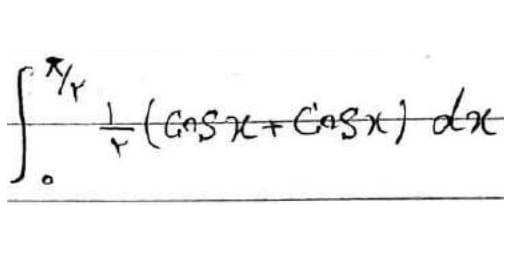 ∫₀^(π/۲) ۱/۲ (Cosx + Cosx) dx